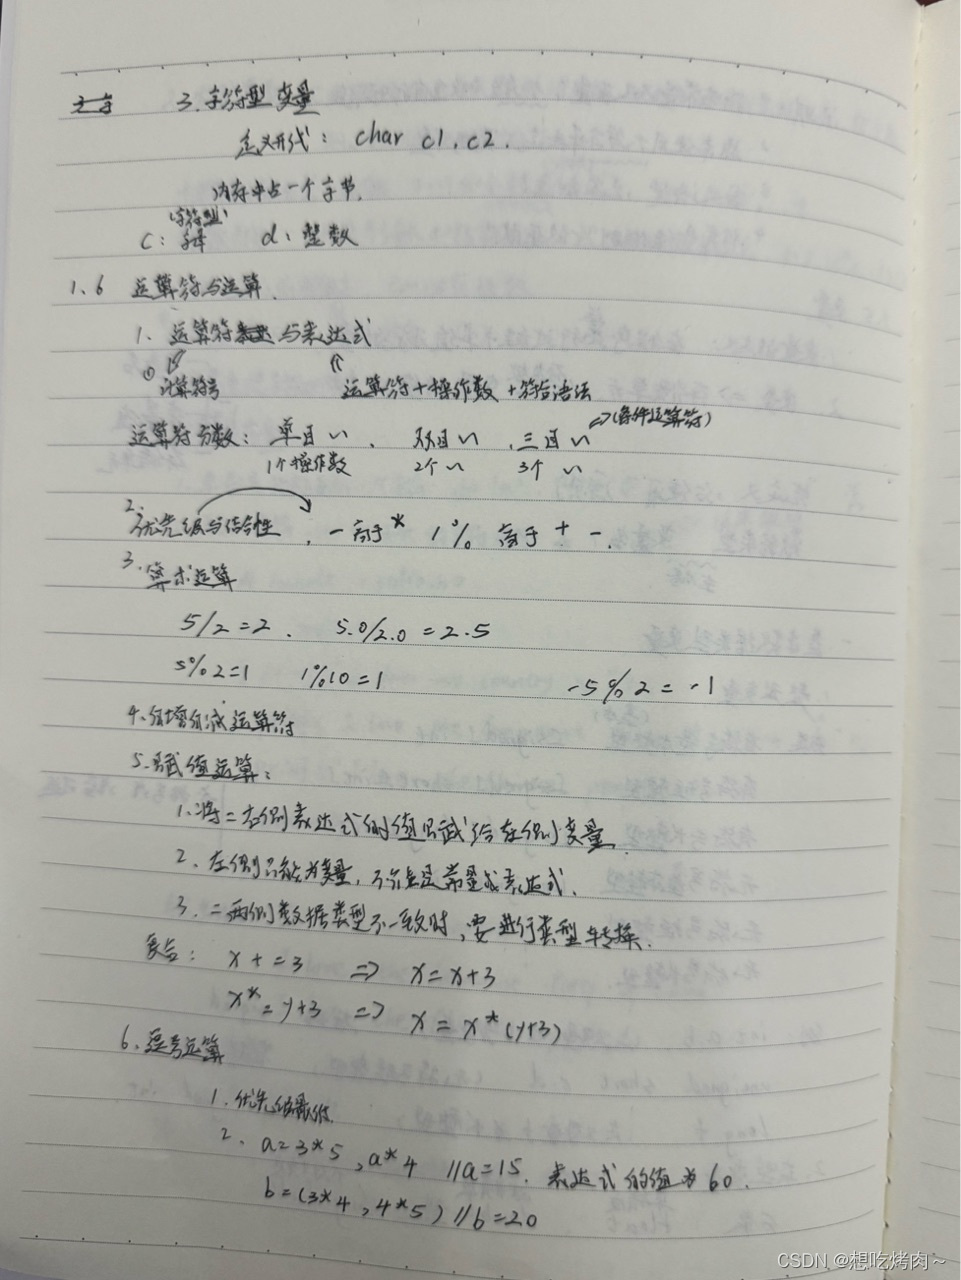 3. 字符型变量
定义形式: char c1, c2.
内存中占一个字节.
'字符型'
c: d: 整数
1.6 运算符与运算.
1. 运算符 与表达式
① 计算符号 运算符+操作数+符合语法
=>(条件运算符)
运算符分数: 单目~、双目~、三目~
1个操作数 2个~ 3个~
2. 优先级与结合性, - 高于 * / % 高于 + -.
3. 算术运算
5/2=2、 5.0/2.0=2.5
5%2=1 1%10=1 -5%2=-1
4. 自增自减运算符
5. 赋值运算:
1. 将=右侧表达式的值赋给左侧变量
2. 左侧只能为变量,不能是常量或表达式.
3. =两侧数据类型不一致时,要进行类型转换.
复合: x+=3 => x=x+3
x*=y+3 => x=x*(y+3)
6. 逗号运算
1. 优先级最低.
2. a=3*5, a*4 //a=15. 表达式的值为60.
b=(3*4, 4*5) //b=20
CSDN @想吃烤肉~